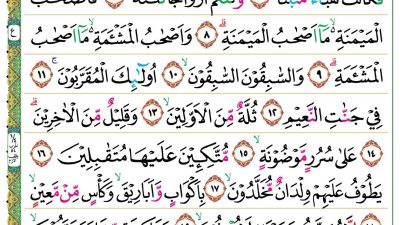 فَكَانَتْ هَبَآءً مُّنْۢبَثًّا
الْمَيْمَنَةِ ۙ مَاۤ اَصْحٰبُ الْمَيْمَنَةِ ۗ ۸ وَاَصْحٰبُ الْمَشْـَٔمَةِ ۙ مَاۤ اَصْحٰبُ
الْمَشْـَٔمَةِ ۗ ۹ وَالسّٰبِقُوْنَ السّٰبِقُوْنَ ۙ ۱۰ اُولٰٓئِكَ الْمُقَرَّبُوْنَ ۚ ۱۱
فِيْ جَنّٰتِ النَّعِيْمِ ۱۲ ثُلَّةٌ مِّنَ الْاَوَّلِيْنَ ۙ ۱۳ وَقَلِيْلٌ مِّنَ الْاٰخِرِيْنَ ۗ
۱٤ عَلٰى سُرُرٍ مَّوْضُوْنَةٍ ۙ ۱٥ مُّتَّكِـِٕيْنَ عَلَيْهَا مُتَقٰبِلِيْنَ ۱٦
يَطُوْفُ عَلَيْهِمْ وِلْدَانٌ مُّخَلَّدُوْنَ ۙ ۱۷ بِاَكْوَابٍ وَّاَبَارِيْقَ ۙ وَكَأْسٍ مِّنْ مَّعِيْنٍ ۙ